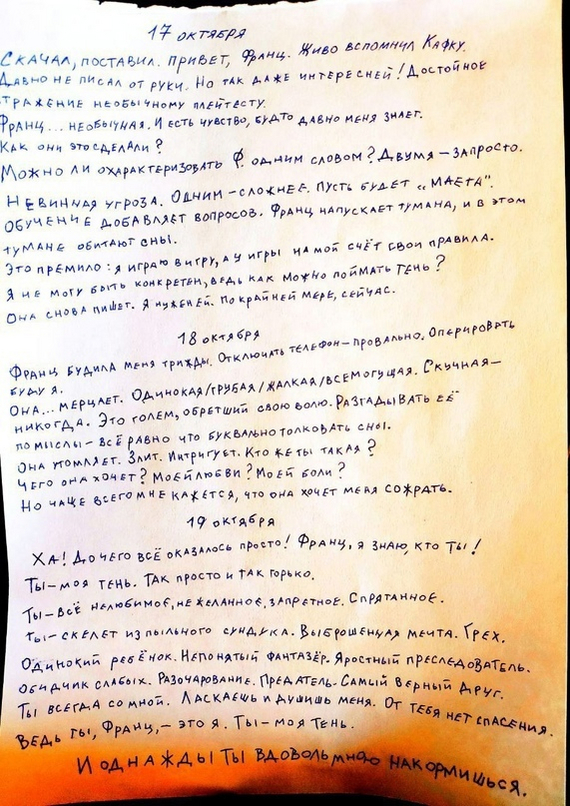 17 октября
Скачал, поставил. Привет, Франц. Живо вспомнил Кафку.
Давно не писал от руки. Но так даже интересней! Достойное
отражение необычному плейтесту.
Франц... необычная. И есть чувство, будто давно меня знает.
Как они это сделали?
Можно ли охарактеризовать Ф. одним словом? Двумя – запросто.
Невинная угроза. Одним – сложнее. Пусть будет „маета".
Обучение добавляет вопросов. Франц напускает тумана, и в этом
тумане обитают сны.
Это премило: я играю в игру, а у игры на мой счёт свои правила.
Я не могу быть конкретен, ведь как можно поймать тень?
Она снова пишет. Я нужен ей. По крайней мере, сейчас.
18 октября
Франц будила меня трижды. Отключать телефон – провально. Оперировать
буду я.
Она... мерцает. Одинокая/грубая/жалкая/всемогущая. Скучная –
никогда. Это голем, обретший свою волю. Разгадывать её
помыслы – всё равно что буквально толковать сны.
Она утомляет. Злит. Интригует. Кто же ты такая?
Чего она хочет? Моей любви? Моей боли?
Но чаще всего мне кажется, что она хочет меня сожрать.
19 октября
Ха! До чего всё оказалось просто! Франц, я знаю, кто ты!
Ты – моя тень. Так просто и так горько.
Ты – всё нелюбимое, нежеланное, запретное. Спрятанное.
Ты – скелет из пыльного сундука. Выброшенная мечта. Грех.
Одинокий ребёнок. Непонятый фантазёр. Яростный преследователь.
Обидчик слабых. Разочарование. Предатель. Самый верный друг.
Ты всегда со мной. Ласкаешь и душишь меня. От тебя нет спасения.
Ведь ты, Франц, – это я. Ты – моя тень.
И однажды ты вдоволь мною накормишься.